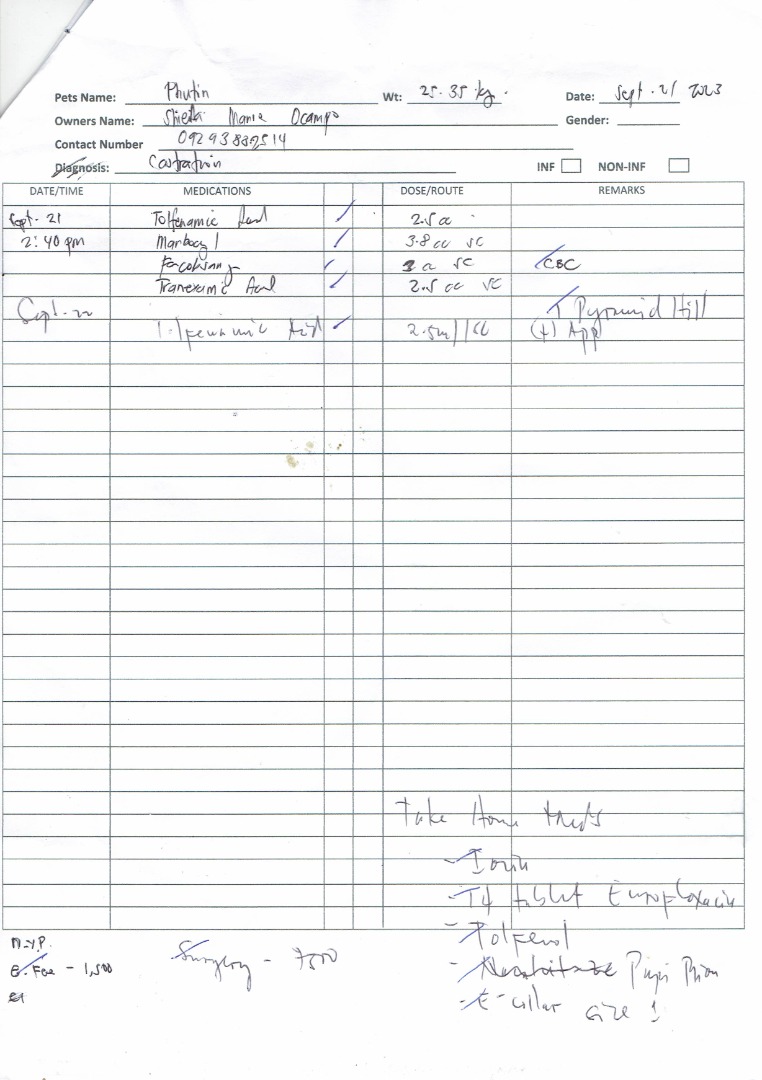 Pets Name: Phutin Wt: 25.35 kg. Date: Sept. 21 2023
Owners Name: Sheila Marie Ocampo Gender:
Contact Number
Diagnosis: Castration INF NON-INF
DATE/TIME MEDICATIONS DOSE/ROUTE REMARKS
Sept. 21 Tolfenamic Acid 2.5 cc
2:40 pm Marbocyl 3.8 cc SC
cc SC CBC
Tranexamic Acid 2.5 cc SC
Sept. 22 Pyramid Hill
Tolfenamic Acid 2.5ml SC (+) App
Take Home Meds
- Iorin
- T4 tablet Enrofloxacin
- Tolfenol
- Papi
- E-collar size 1
N.Y.P.
E. Fee - 1,500 Surgery - 7500